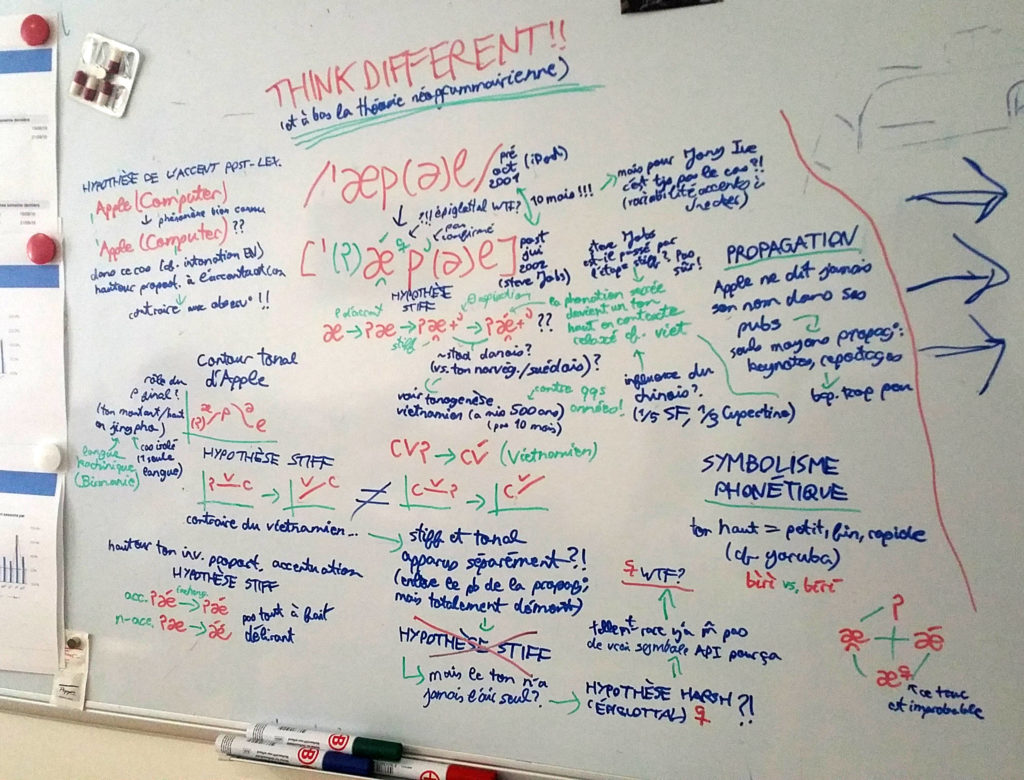 THINK DIFFERENT!!
(et à bas la théorie néogrammairienne)
HYPOTHÈSE DE L'ACCENT POST-LEX.
Apple (Computer)
↳ phénomène bien connu
Apple (Computer) ??
dans ce cas (cf. intonation EN)
hauteur propost. à l'accentuation
contraire aux observ° !!
/ˈæp(ə)l/
pré
oct
2001
(iPod)
10 mois !!!
mais pour Jony Ive
c'est tjs pas le cas ?!
(variabilité accents ;
?!! épiglottal WTF?
pas
confirmé
[ˈ(ʔ)ǽ p(ə)l]
post
jui
2002
(Steve Jobs)
Steve Jobs
est-il passé par
l'étape stiff? Pas
sûr!
HYPOTHÈSE
STIFF
æ → ʔæ → ʔæ+ → ʔæ+ ??
stiff
la phonation
devient un ton
haut en contexte
relaxé cf. viet
~ stød danois ?
(vs. ton norvég./suédois) ?
voir tonogenèse
vietnamien (a mis 500 ans)
(pas 10 mois)
contre 99$
années!
influence du
chinois ?
(1/5 SF, 1/3 Cupertino)
PROPAGATION
Apple ne dit jamais
son nom dans ses
pubs
seuls moyens propag° :
keynotes, reportages
bcp. trop peu
Contour tonal
d'Apple
rôle du
p final ?
(ton montant/haut
en jingpho)
langue
kachinique
(Birmanie)
cas isolé
(1 seule
langue)
(ʔ) æ p ə l
HYPOTHÈSE STIFF
ʔ V C → V C ≠ C V ʔ → C V
CVʔ → CV́ (Vietnamien)
contraire du vietnamien...
stiff et tonal
apparus séparément ?!
(enlève le pb de la propag°,
mais totalement dément)
HYPOTHÈSE STIFF
↳ mais le ton n'a
jamais été seul ?
HYPOTHÈSE HARSH ?!
(ÉPIGLOTTAL)
tellem^t rare y'a m̂ pas
de vrai symbole API pour ça
WTF?
hauteur ton inv. propost. accentuation
HYPOTHÈSE STIFF
acc. ʔǽ → ʔǽ
n-acc. ʔæ → ǽ
pas tout à fait
délirant
SYMBOLISME
PHONÉTIQUE
ton haut = petit, fin, rapide
(cf. yoruba)
bírí vs. bìrì
ʔ
æ + ǽ
æ
ce truc
est improbable